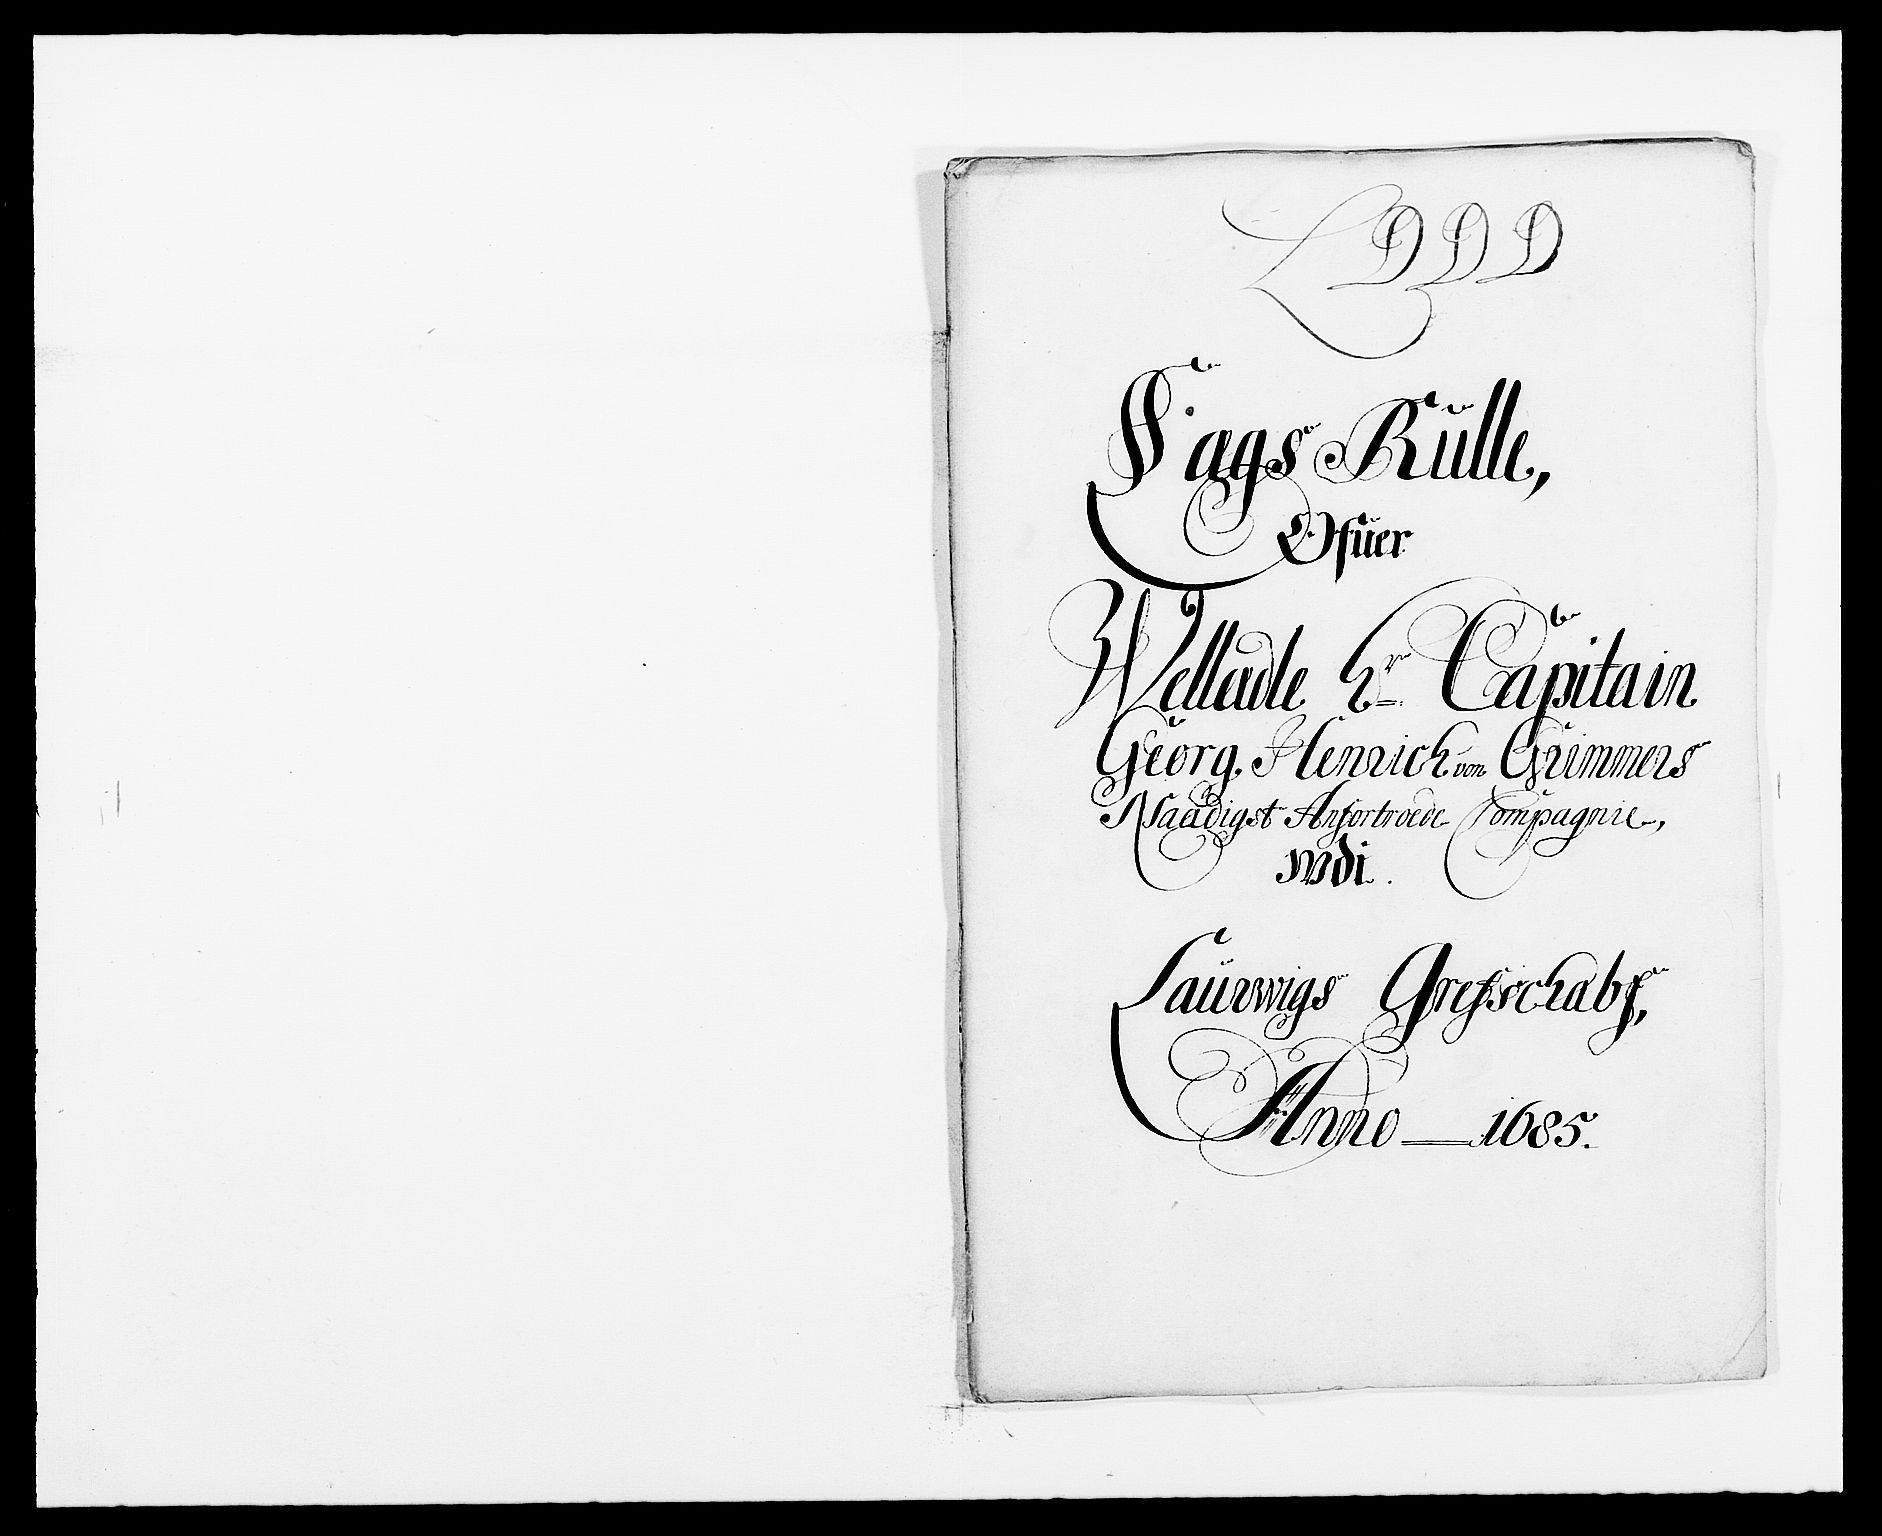 L D D D
Lags Rülle,
Ofüer
Welladle hr Capitain
Georg Henrich von Grimmers
Naadigst Anfortroede Compagnie,
Wdi.
Laurwigs Grefschabs,
Anno 1685.